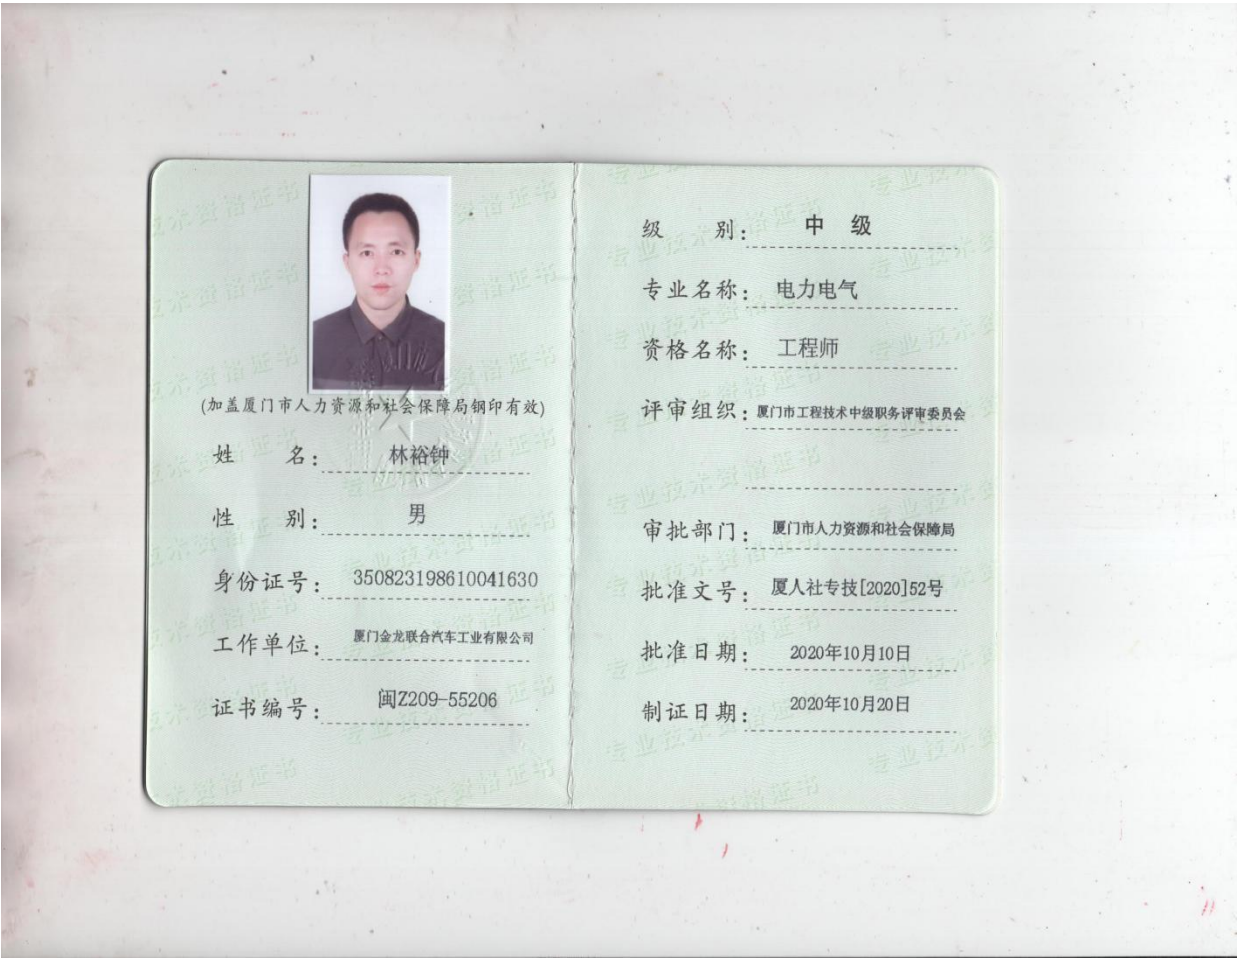 (加盖厦门市人力资源和社会保障局钢印有效)
姓 名: 林裕钟
性 别: 男
身份证号: 350823198610041630
工作单位: 厦门金龙联合汽车工业有限公司
证书编号: 闽Z209-55206
级 别: 中 级
专业名称: 电力电气
资格名称: 工程师
评审组织: 厦门市工程技术中级职务评审委员会
审批部门: 厦门市人力资源和社会保障局
批准文号: 厦人社专技[2020]52号
批准日期: 2020年10月10日
制证日期: 2020年10月20日